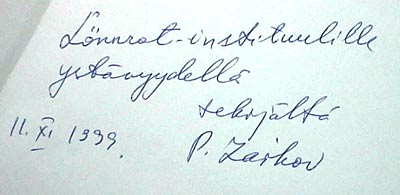 Lönnrot-instituutille
ystävyydellä
tekijältä
11. XI 1999.
P. Zaikov